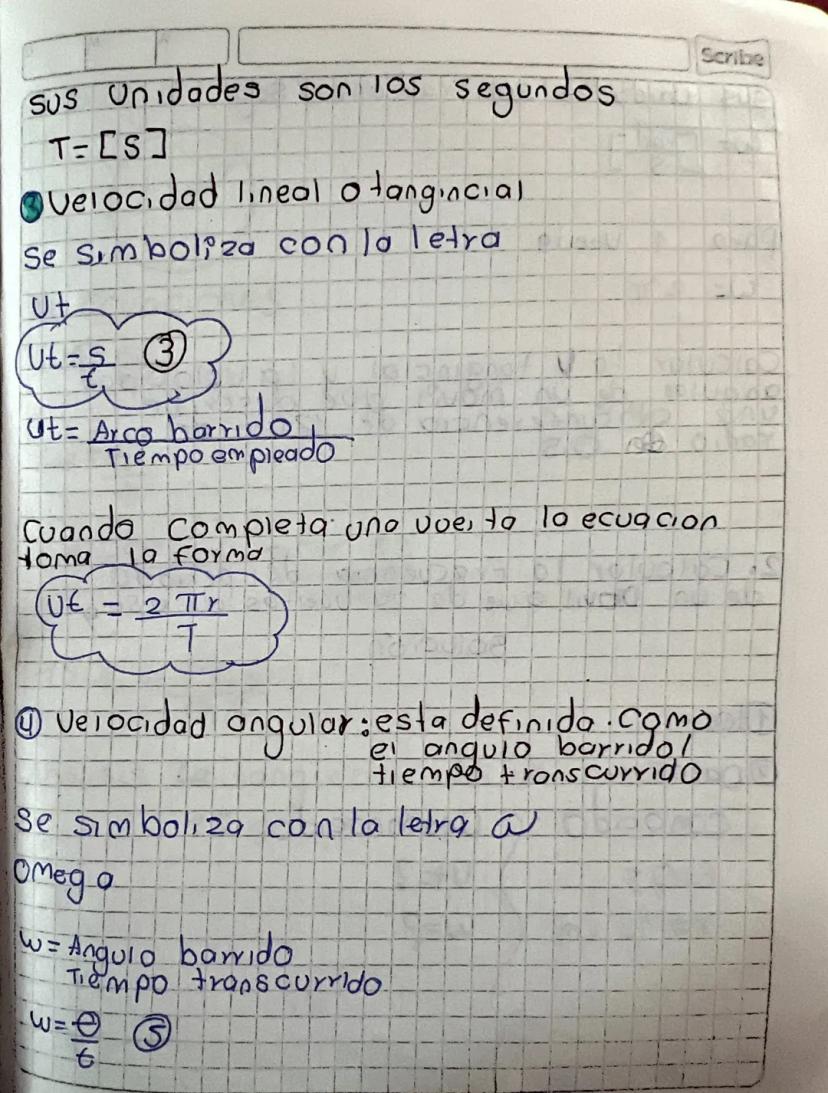 Scribe
sus unidades son los segundos
T=[S]
③ velocidad lineal o tangincial
se simboliza con la letra
Ut
Ut=s/t ③
Ut= Arco barrido / Tiempo empleado
cuando completa una vuelta la ecuacion
toma la forma
Ut = 2πr/T
④ velocidad angular: esta definida como
el angulo barrido/
tiempo transcurrido
se simboliza con la letra ω
omega
w= Angulo barrido
Tiempo transcurrido
w=θ/t ⑤